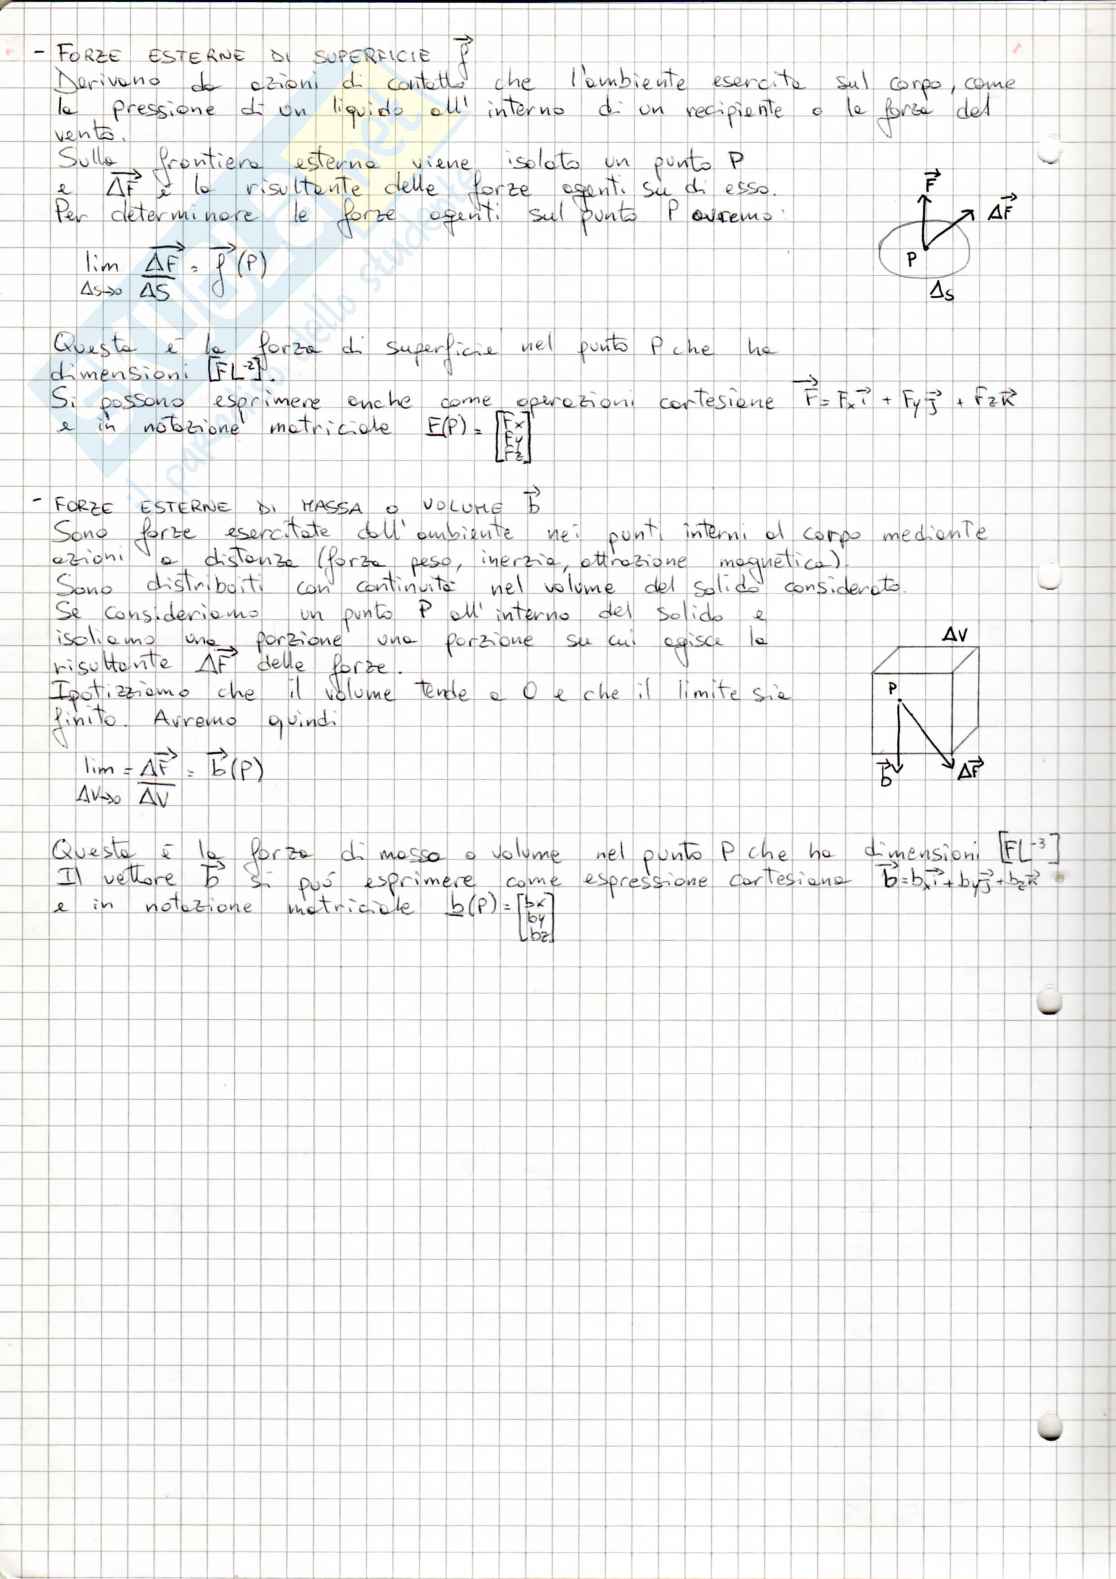 - FORZE ESTERNE DI SUPERFICIE f⃗
Derivano da azioni di contatto che l'ambiente esercita sul corpo, come
la pressione di un liquido all'interno di un recipiente o la forza del
vento.
Sulla frontiera esterna viene isolato un punto P
e ΔF⃗ è la risultante delle forze agenti su di esso.
Per determinare le forze agenti sul punto P avremo:
F⃗
ΔF⃗
P
ΔS
lim ΔF⃗ = f⃗(P)
ΔS→0 ΔS
Questa è la forza di superficie nel punto P che ha
dimensioni [FL⁻²].
Si possono esprimere anche come operazioni cartesiane F⃗ = Fx i⃗ + Fy j⃗ + Fz k⃗
e in notazione matriciale F(P) = [Fx
Fy
Fz]
- FORZE ESTERNE DI MASSA O VOLUME b⃗
Sono forze esercitate dall'ambiente nei punti interni al corpo mediante
azioni a distanza (forza peso, inerzia, attrazione magnetica).
Sono distribuiti con continuità nel volume del solido considerato.
Se consideriamo un punto P all'interno del solido e
isoliamo una porzione una porzione su cui agisce la
risultante ΔF⃗ delle forze.
Ipotizziamo che il volume tende a 0 e che il limite sia
finito. Avremo quindi
ΔV
P
b⃗
ΔF⃗
lim = ΔF⃗ = b⃗(P)
ΔV→0 ΔV
Questa è la forza di massa o volume nel punto P che ha dimensioni [FL⁻³]
Il vettore b⃗ si può esprimere come espressione cartesiana b⃗ = bx i⃗ + by j⃗ + bz k⃗
e in notazione matriciale b(P) = [bx
by
bz]